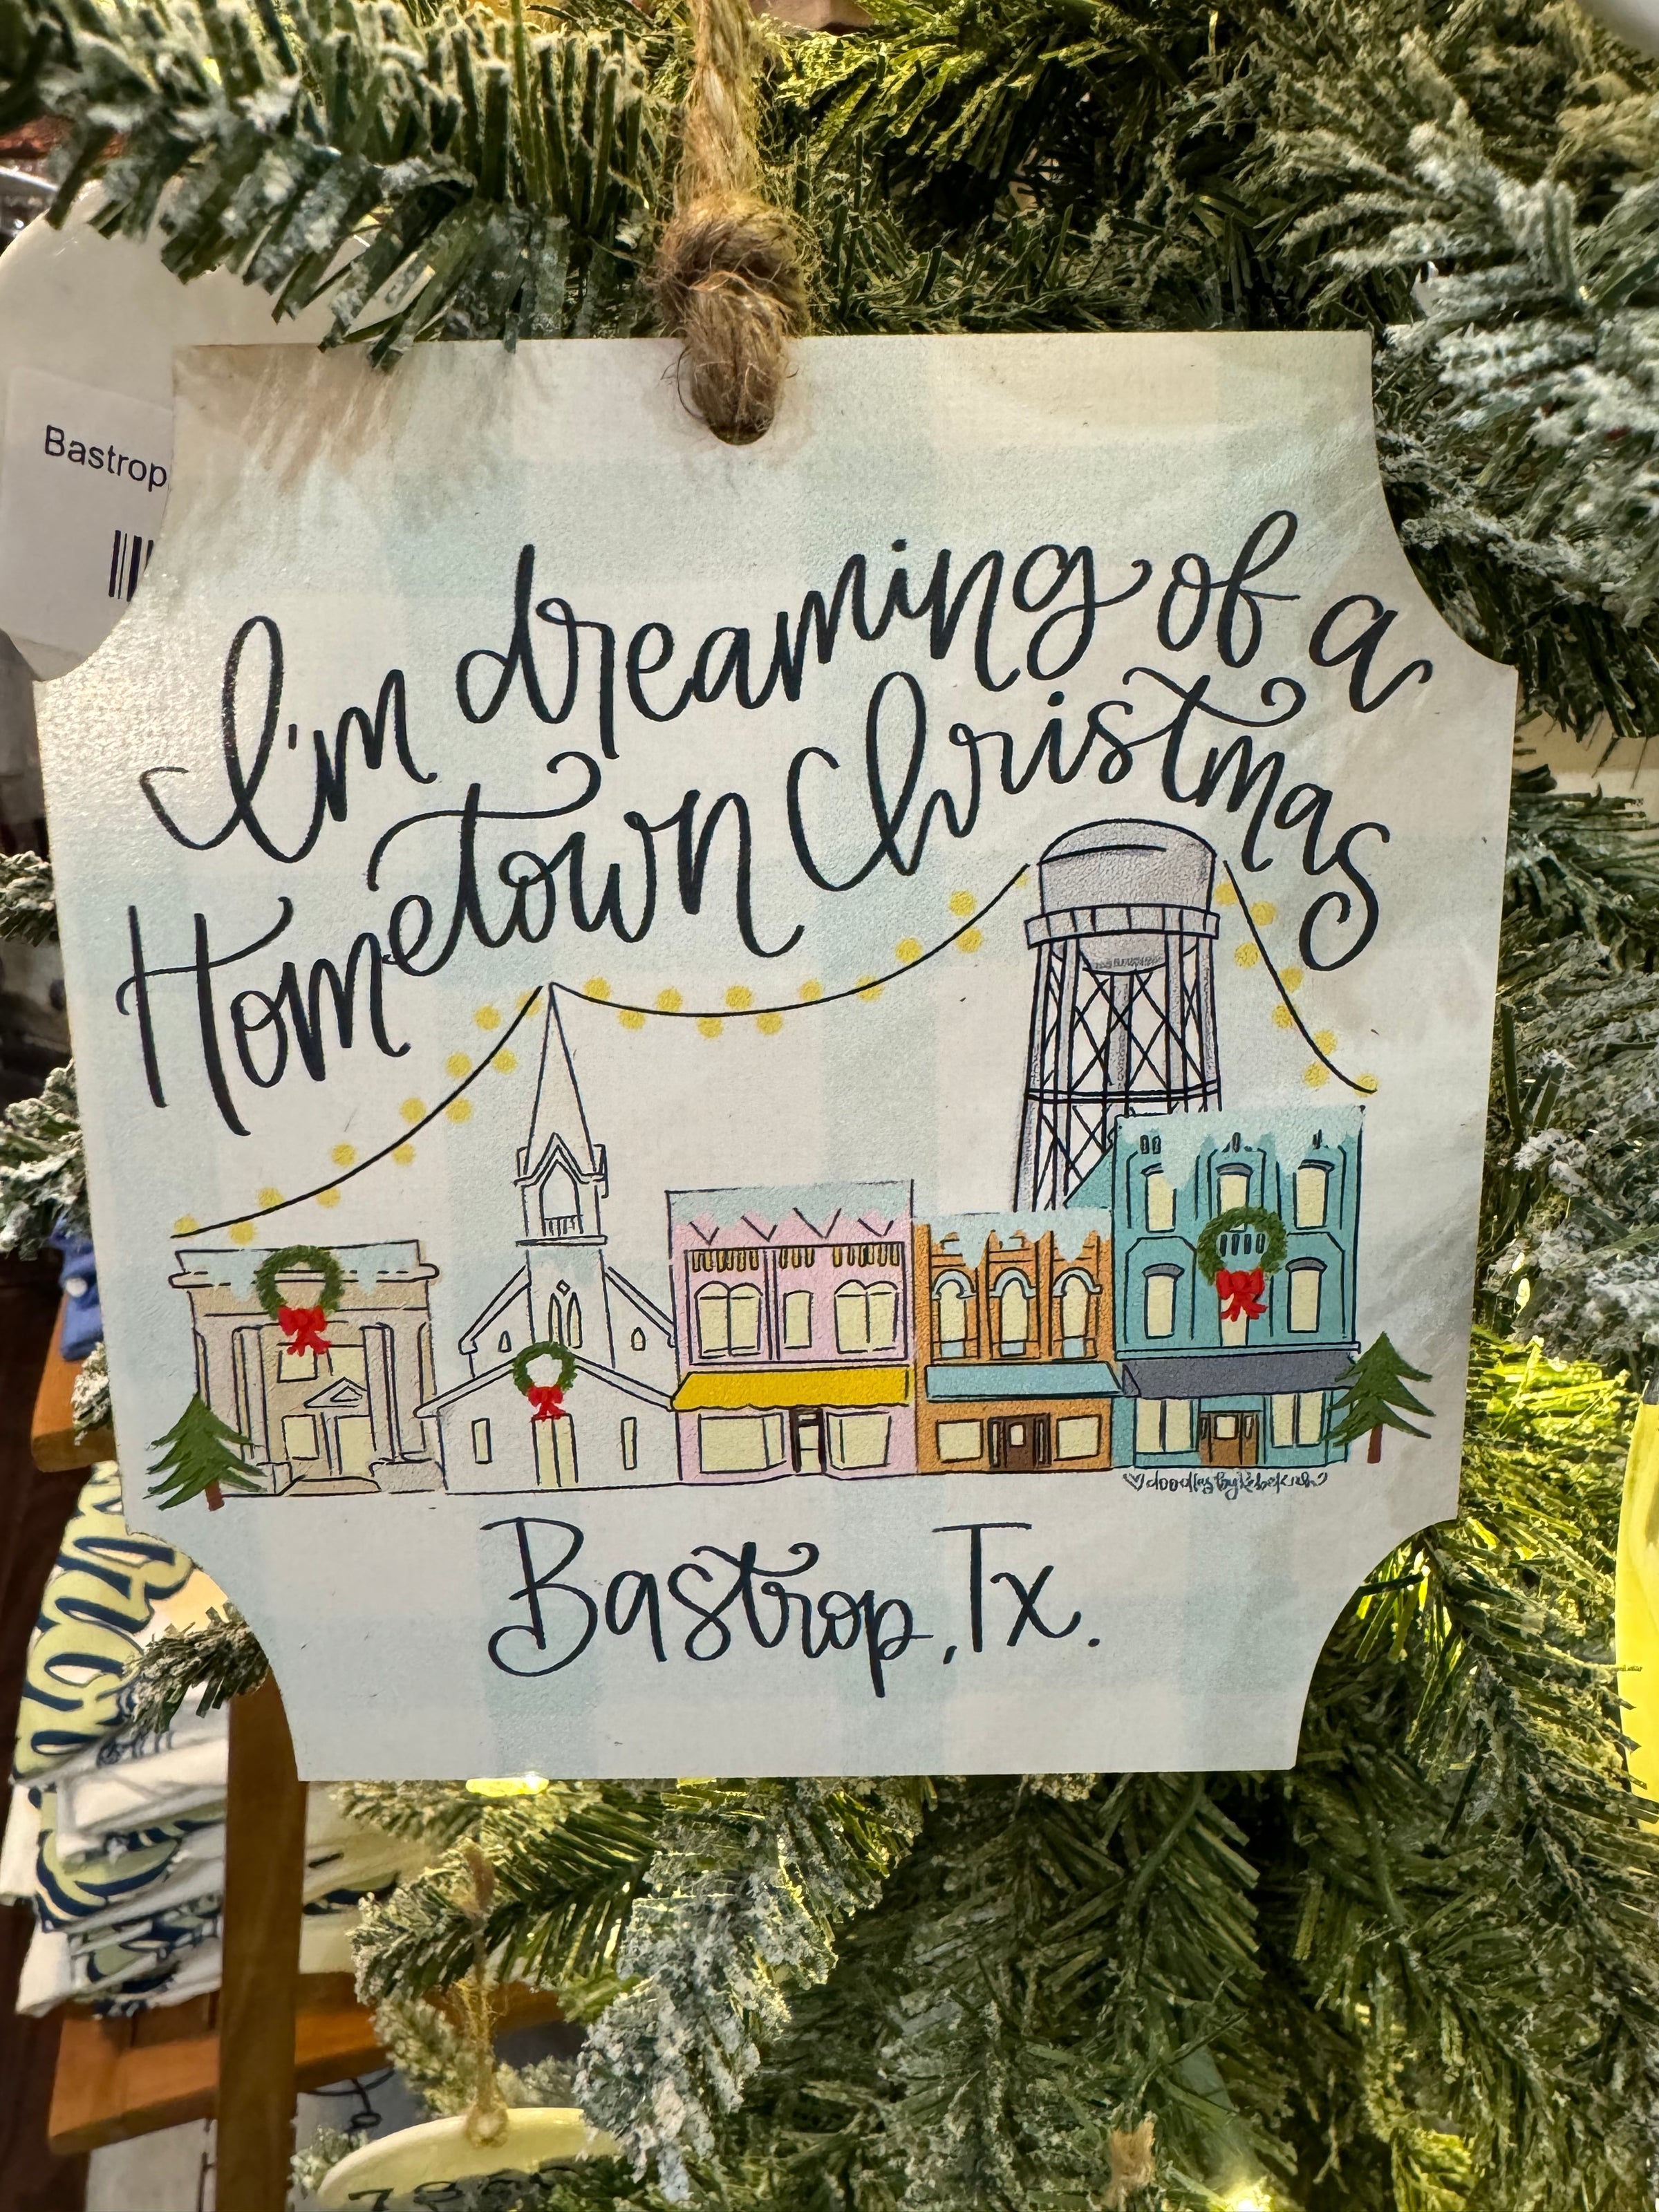 Bastrop
I'm dreaming of a
Hometown Christmas
Bastrop, Tx.